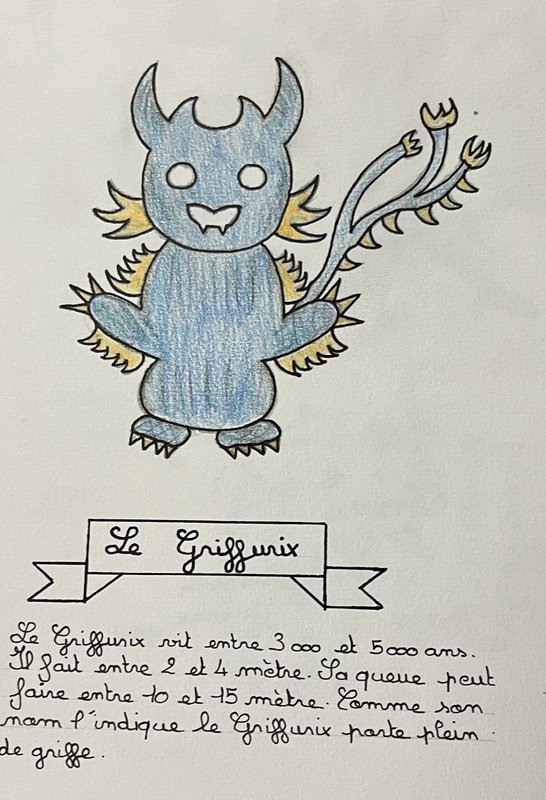 Le Griffurix
Le Griffurix vit entre 3000 et 5000 ans.
Il fait entre 2 et 4 mètre. Sa queue peut
faire entre 10 et 15 mètre. Comme son
nom l'indique le Griffurix porte plein
de griffe.